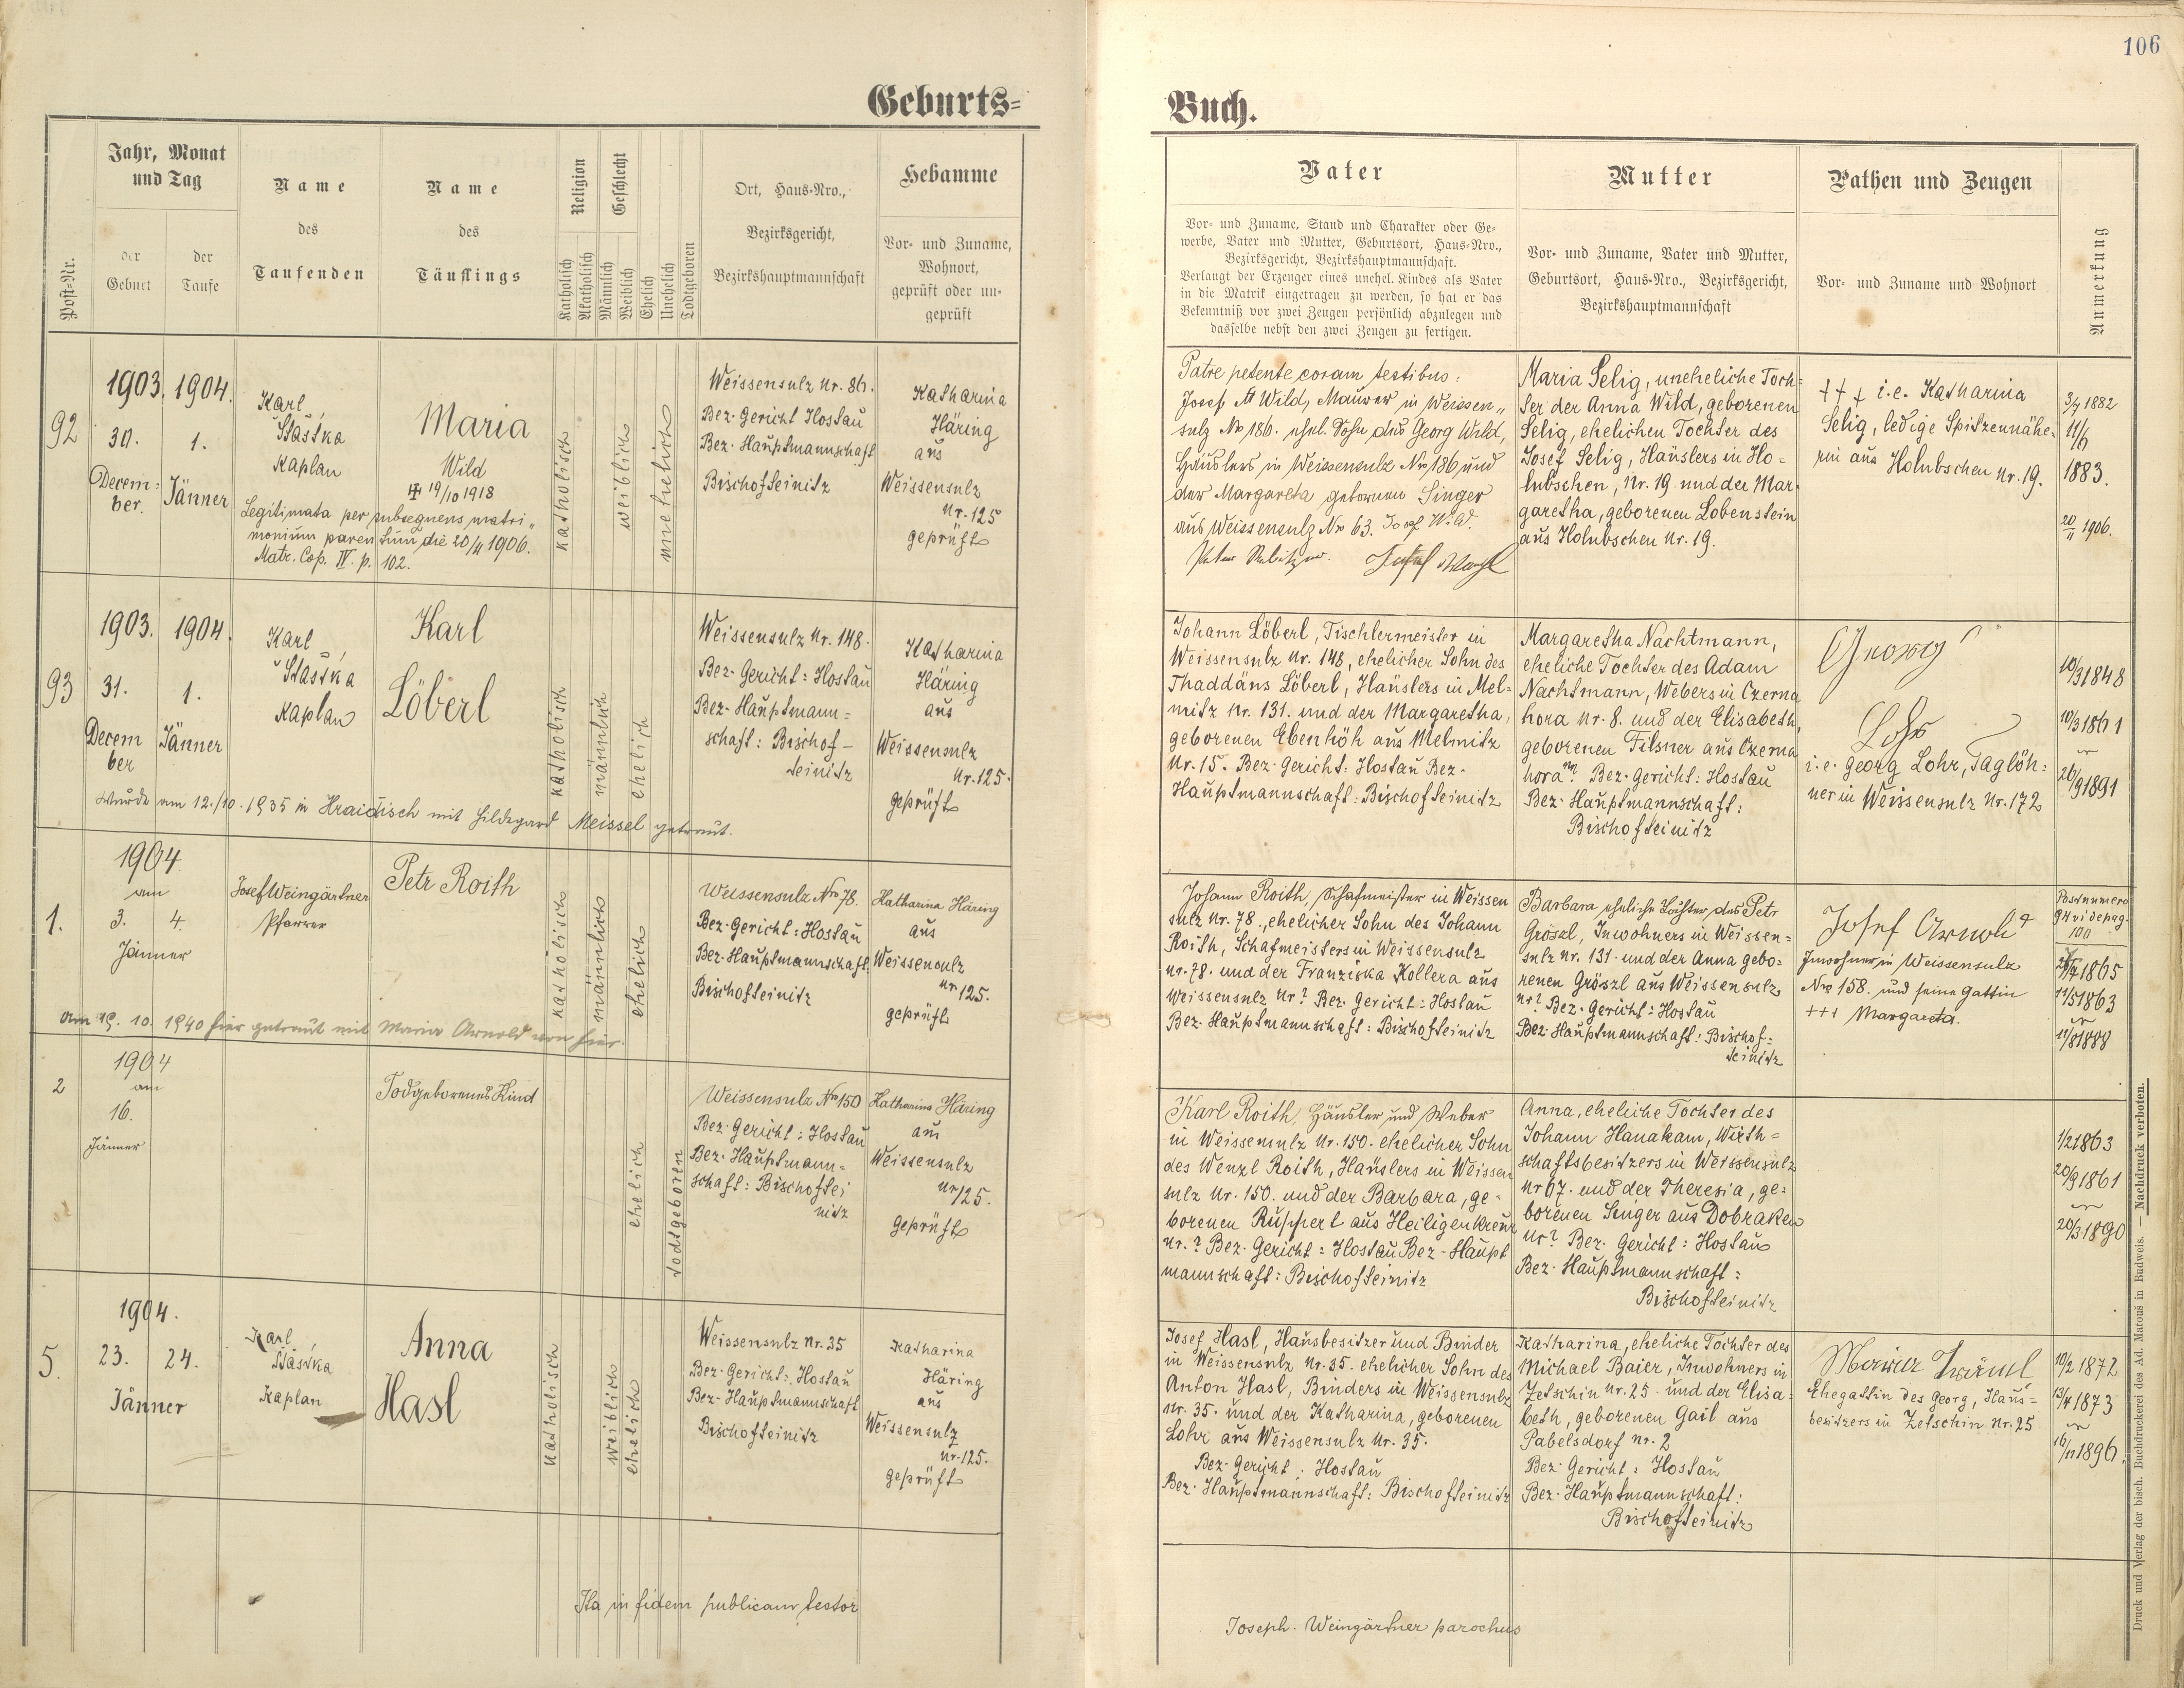 106
Geburts-
Buch.
Post-Nr.
Jahr, Monat
und Tag
der
Geburt
der
Taufe
Name
des
Taufenden
Name
des
Täuflings
Religion
Katholisch
Akatholisch
Geschlecht
Männlich
Weiblich
Ehelich
Unehelich
Todtgeboren
Ort, Haus-Nro.,
Bezirksgericht,
Bezirkshauptmannschaft
Hebamme
Vor- und Zuname,
Wohnort,
geprüft oder un-
geprüft
Vater
Vor- und Zuname, Stand und Charakter oder Ge-
werbe, Vater und Mutter, Geburtsort, Haus-Nro.,
Bezirksgericht, Bezirkshauptmannschaft.
Verlangt der Erzeuger eines unehel. Kindes als Vater
in die Matrik eingetragen zu werden, so hat er das
Bekenntniß vor zwei Zeugen persönlich abzulegen und
dasselbe nebst den zwei Zeugen zu fertigen.
Mutter
Vor- und Zuname, Vater und Mutter,
Geburtsort, Haus-Nro., Bezirksgericht,
Bezirkshauptmannschaft
Pathen und Zeugen
Vor- und Zuname und Wohnort
Anmerkung
92
1903. 1904.
30. 1.
Decem=
ber. Jänner
Karl
Šťastka
Kaplan
Maria
Wild
19/10 1918
Legitimata per subsequens matri„
monium parentum die 20/11 1906.
Matr. Cop. IV. p. 102.
katholisch
weiblich
unehelich
Weissensulz Nr. 86.
Bez. Gericht Hostau
Bez. Hauptmannschaft
Bischofteinitz
Katharina
Häring
aus
Weissensulz
Nr. 125
geprüft
Patre petente coram testibus:
Josef Wild, Maurer in Weissen„
sulz No 186. ehel. Sohn des Georg Wild,
Häuslers in Weissensulz No 186 und
der Margareta gebornen Singer
aus Weissensulz No 63. Josef Wild.
Maria Selig, uneheliche Toch=
ter der Anna Wild, geborenen
Selig, ehelichen Tochter des
Josef Selig, Häuslers in Ho=
lubschen, Nr. 19 und der Mar=
garetha, geborenen Lobenstein
aus Holubschen Nr. 19.
+++ i.e. Katharina
Selig, ledige Spitzennähe=
rin aus Holubschen Nr. 19.
3/7 1882
11/6
1883.
20/11 1906.
93
1903. 1904.
31. 1.
Decem
ber Jänner
Karl
Šťastka
Kaplan
Karl
Löberl
Wurde am 12./10. 1935 in Hraidisch mit Hildegard Meissel getraut.
katholisch
männlich
ehelich
Weissensulz Nr. 148.
Bez. Gericht: Hostau
Bez. Hauptmann=
schaft: Bischof-
teinitz
Katharina
Häring
aus
Weissensulz
Nr. 125.
geprüft
Johann Löberl, Tischlermeister in
Weissensulz Nr. 148, ehelicher Sohn des
Thaddäus Löberl, Häuslers in Mel=
mitz Nr. 131. und der Margaretha,
geborenen Ebenhöh aus Melmitz
Nr. 15. Bez. Gericht: Hostau Bez.
Hauptmannschaft: Bischofteinitz
Margaretha Nachtmann,
eheliche Tochter des Adam
Nachtmann, Webers in Czerna
hora Nr. 8. und der Elisabeth,
geborenen Filsner aus Czerna
hora Nr? Bez. Gericht: Hostau
Bez. Hauptmannschaft:
Bischofteinitz
Georg
Lohr
i.e. Georg Lohr, Taglöh=
ner in Weissensulz Nr. 172
10/3 1848
10/3 1861
26/9 1891
1.
1904
am
3. 4.
Jänner
Josef Weingärtner
Pfarrer
Petr Roith
am 19. 10. 1940 hier getraut mit Maria Arnold von hier.
katholisch
männlich
ehelich
Weissensulz No 78.
Bez. Gericht: Hostau
Bez. Hauptmannschaft
Bischofteinitz
Katharina Häring
aus
Weissensulz
Nr 125.
geprüft
Johann Roith, Schafmeister in Weissen
sulz Nr. 78., ehelicher Sohn des Johann
Roith, Schafmeisters in Weissensulz
Nr. 78. und der Franziska Kollera aus
Weissensulz Nr? Bez. Gericht: Hostau
Bez. Hauptmannschaft: Bischofteinitz
Barbara eheliche Tochter des Petr
Gröszl, Inwohners in Weissen=
sulz Nr. 131. und der Anna gebo=
renen Gröszl aus Weissensulz
Nr? Bez. Gericht: Hostau
Bez. Hauptmannschaft: Bischof=
teinitz
Josef Arnold
Inwohner in Weissensulz
Nro 158. und seine Gattin
+++ Margareta.
Postnumero
94 vide pag.
100
1865
11/5 1863
11/8 1888
2
1904
am
16.
Jänner
Todgeborenes Kind
ehelich
todtgeboren
Weissensulz No 150
Bez. Gericht: Hostau
Bez. Hauptmann=
schaft: Bischoftei
nitz
Katharina Häring
aus
Weissensulz
Nr 125.
geprüft
Karl Roith, Häusler und Weber
in Weissensulz Nr. 150. ehelicher Sohn
des Wenzl Roith, Häuslers in Weissen
sulz Nr. 150. und der Barbara, ge=
borenen Ruppert aus Heiligenkreuz
Nr.? Bez. Gericht: Hostau Bez-Haupt
mannschaft: Bischofteinitz
Anna, eheliche Tochter des
Johann Hanakam, Wirth=
schaftsbesitzers in Weissensulz
Nr 67. und der Theresia, ge=
borenen Singer aus Dobraken
Nr? Bez. Gericht: Hostau
Bez. Hauptmannschaft:
Bischofteinitz
1/2 1863
20/9 1861
20/3 1890
5.
1904.
23. 24.
Jänner
Karl
Šťastka
Kaplan
Anna
Hasl
katholisch
weiblich
ehelich
Weissensulz Nr. 35
Bez. Gericht: Hostau
Bez. Hauptmannschaft
Bischofteinitz
Katharina
Häring
aus
Weissensulz
Nr. 125.
geprüft
Josef Hasl, Hausbesitzer und Binder
in Weissensulz Nr. 35. ehelicher Sohn des
Anton Hasl, Binders in Weissensulz
Nr. 35. und der Katharina, geborenen
Lohr aus Weissensulz Nr. 35.
Bez. Gericht: Hostau
Bez. Hauptmannschaft: Bischofteinitz
Katharina, eheliche Tochter des
Michael Baier, Inwohners in
Zetschin Nr. 25. und der Elisa=
beth, geborenen Gail aus
Pabelsdorf Nr. 2
Bez. Gericht: Hostau
Bez. Hauptmannschaft:
Bischofteinitz
Ehegattin des Georg, Haus=
besitzers in Zetschin Nr. 25
10/2 1872
13/4 1873
16/11 1896.
Ita in fidem publicam testor
Joseph. Weingärtner parochus
Druck und Verlag der bisch. Buchdruckerei des Ad. Matouš in Budweis. — Nachdruck verboten.